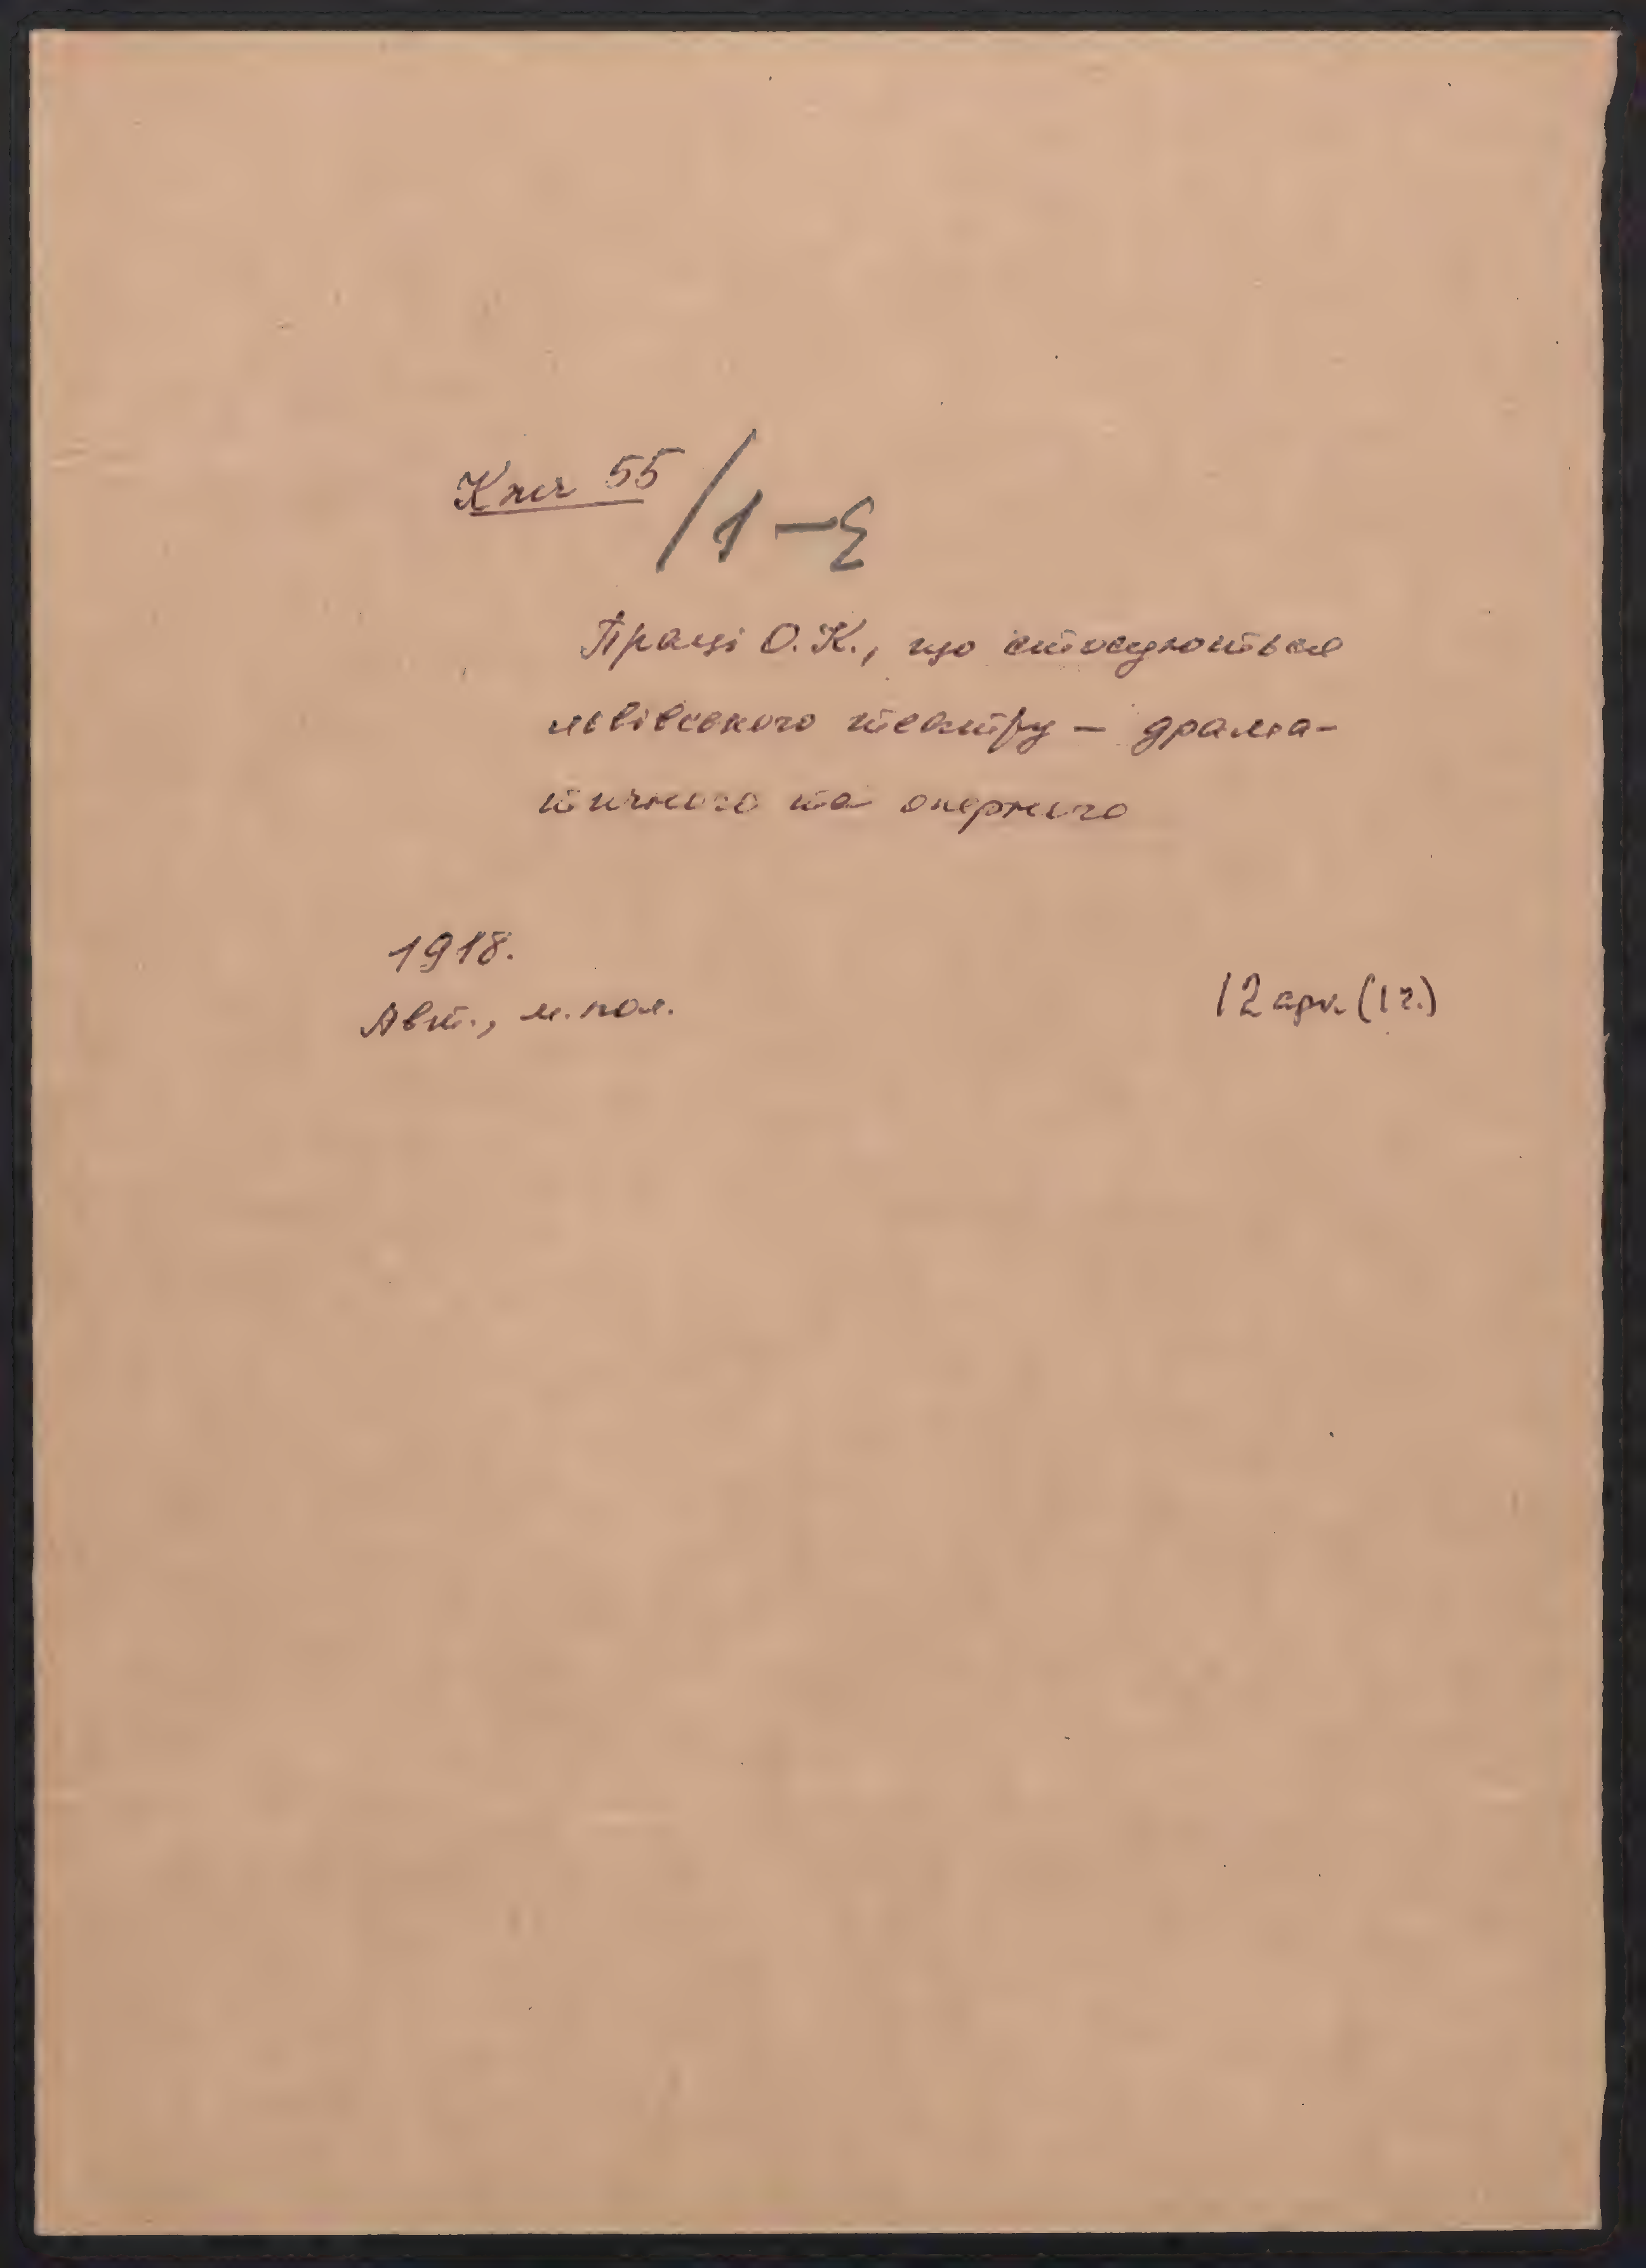 Кнч 55 /1-Σ
Праці О.К., що стосуються
львівського театру – драма-
тичного та оперного
1918.
Авт., м. пол.
12 арк. (1 г.)